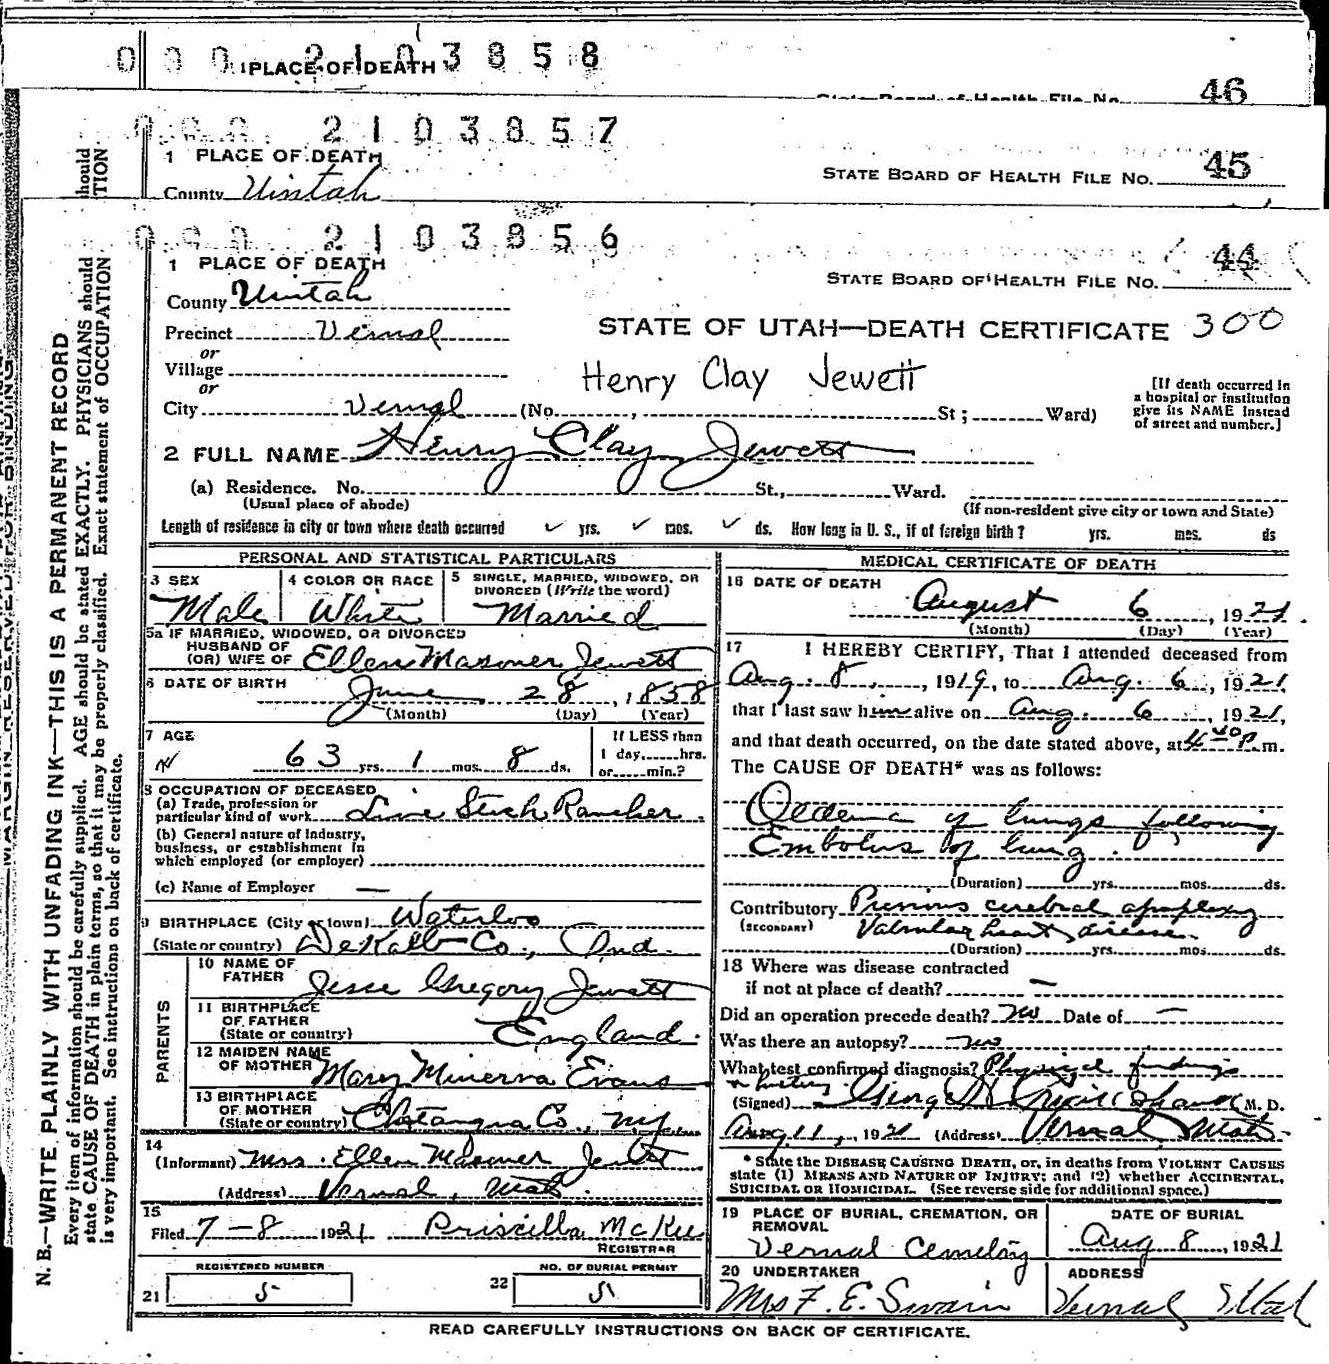 000 2103858
1 PLACE OF DEATH
State Board of Health File No. 46
000 2103857
1 PLACE OF DEATH
STATE BOARD OF HEALTH FILE NO. 45
County Uintah
000 2103856
1 PLACE OF DEATH
STATE BOARD OF HEALTH FILE NO. 44
County Uintah
STATE OF UTAH—DEATH CERTIFICATE 300
Precinct Vernal
or
Village
or
Henry Clay Jewett
City Vernal (No. , St; Ward)
[If death occurred in
a hospital or institution
give its NAME instead
of street and number.]
2 FULL NAME Henry Clay Jewett
(a) Residence. No. St., Ward.
(Usual place of abode) (If non-resident give city or town and State)
Length of residence in city or town where death occurred ✓ yrs. ✓ mos. ✓ ds. How long in U. S., if of foreign birth? yrs. mos. ds
PERSONAL AND STATISTICAL PARTICULARS
3 SEX Male
4 COLOR OR RACE White
5 SINGLE, MARRIED, WIDOWED, OR
DIVORCED (Write the word)
Married
5a IF MARRIED, WIDOWED, OR DIVORCED
HUSBAND OF
(OR) WIFE OF Ellen Masoner Jewett
6 DATE OF BIRTH June 28, 1858
(Month) (Day) (Year)
7 AGE
63 yrs. 1 mos. 8 ds.
If LESS than
1 day, hrs.
or min.?
8 OCCUPATION OF DECEASED
(a) Trade, profession or
particular kind of work Live Stock Rancher.
(b) General nature of Industry,
business, or establishment in
which employed (or employer)
(c) Name of Employer —
9 BIRTHPLACE (City or town) Waterloo
(State or country) DeKalb Co., Ind.
PARENTS
10 NAME OF
FATHER Jesse Gregory Jewett
11 BIRTHPLACE
OF FATHER
(State or country) England.
12 MAIDEN NAME
OF MOTHER Mary Minerva Evans
13 BIRTHPLACE
OF MOTHER
(State or country) Chatauqua Co., N.Y.
14
(Informant) Mrs. Ellen Masoner Jewett
(Address) Vernal, Utah.
15
Filed 7-8 1921 Priscilla McKee
REGISTRAR
REGISTERED NUMBER
21 5
NO. OF BURIAL PERMIT
22 5
MEDICAL CERTIFICATE OF DEATH
16 DATE OF DEATH
August 6, 1921
(Month) (Day) (Year)
17 I HEREBY CERTIFY, That I attended deceased from
Aug. 8, 1919, to Aug. 6, 1921
that I last saw him alive on Aug. 6, 1921,
and that death occurred, on the date stated above, at 4:40 P.m.
The CAUSE OF DEATH* was as follows:
Oedema of lungs following
Embolus of lung.
(Duration) yrs. mos. ds.
Contributory Previous cerebral apoplexy
(SECONDARY) Valvular heart disease.
(Duration) yrs. mos. ds.
18 Where was disease contracted
if not at place of death? —
Did an operation precede death? no Date of —
Was there an autopsy? no
What test confirmed diagnosis? Physical findings
& history.
(Signed) M. D.
Aug 11, 1921 (Address) Vernal Utah
* State the DISEASE CAUSING DEATH, or, in deaths from VIOLENT CAUSES
state (1) MEANS AND NATURE OF INJURY; and (2) whether ACCIDENTAL,
SUICIDAL OR HOMICIDAL. (See reverse side for additional space.)
19 PLACE OF BURIAL, CREMATION, OR
REMOVAL
Vernal Cemetery
DATE OF BURIAL
Aug 8, 1921
20 UNDERTAKER
Mrs F. E. Swain
ADDRESS
Vernal Utah
READ CAREFULLY INSTRUCTIONS ON BACK OF CERTIFICATE.
MARGIN RESERVED FOR BINDING
N. B.—WRITE PLAINLY WITH UNFADING INK—THIS IS A PERMANENT RECORD
Every item of information should be carefully supplied. AGE should be stated EXACTLY. PHYSICIANS should
state CAUSE OF DEATH in plain terms, so that it may be properly classified. Exact statement of OCCUPATION
is very important. See instructions on back of certificate.